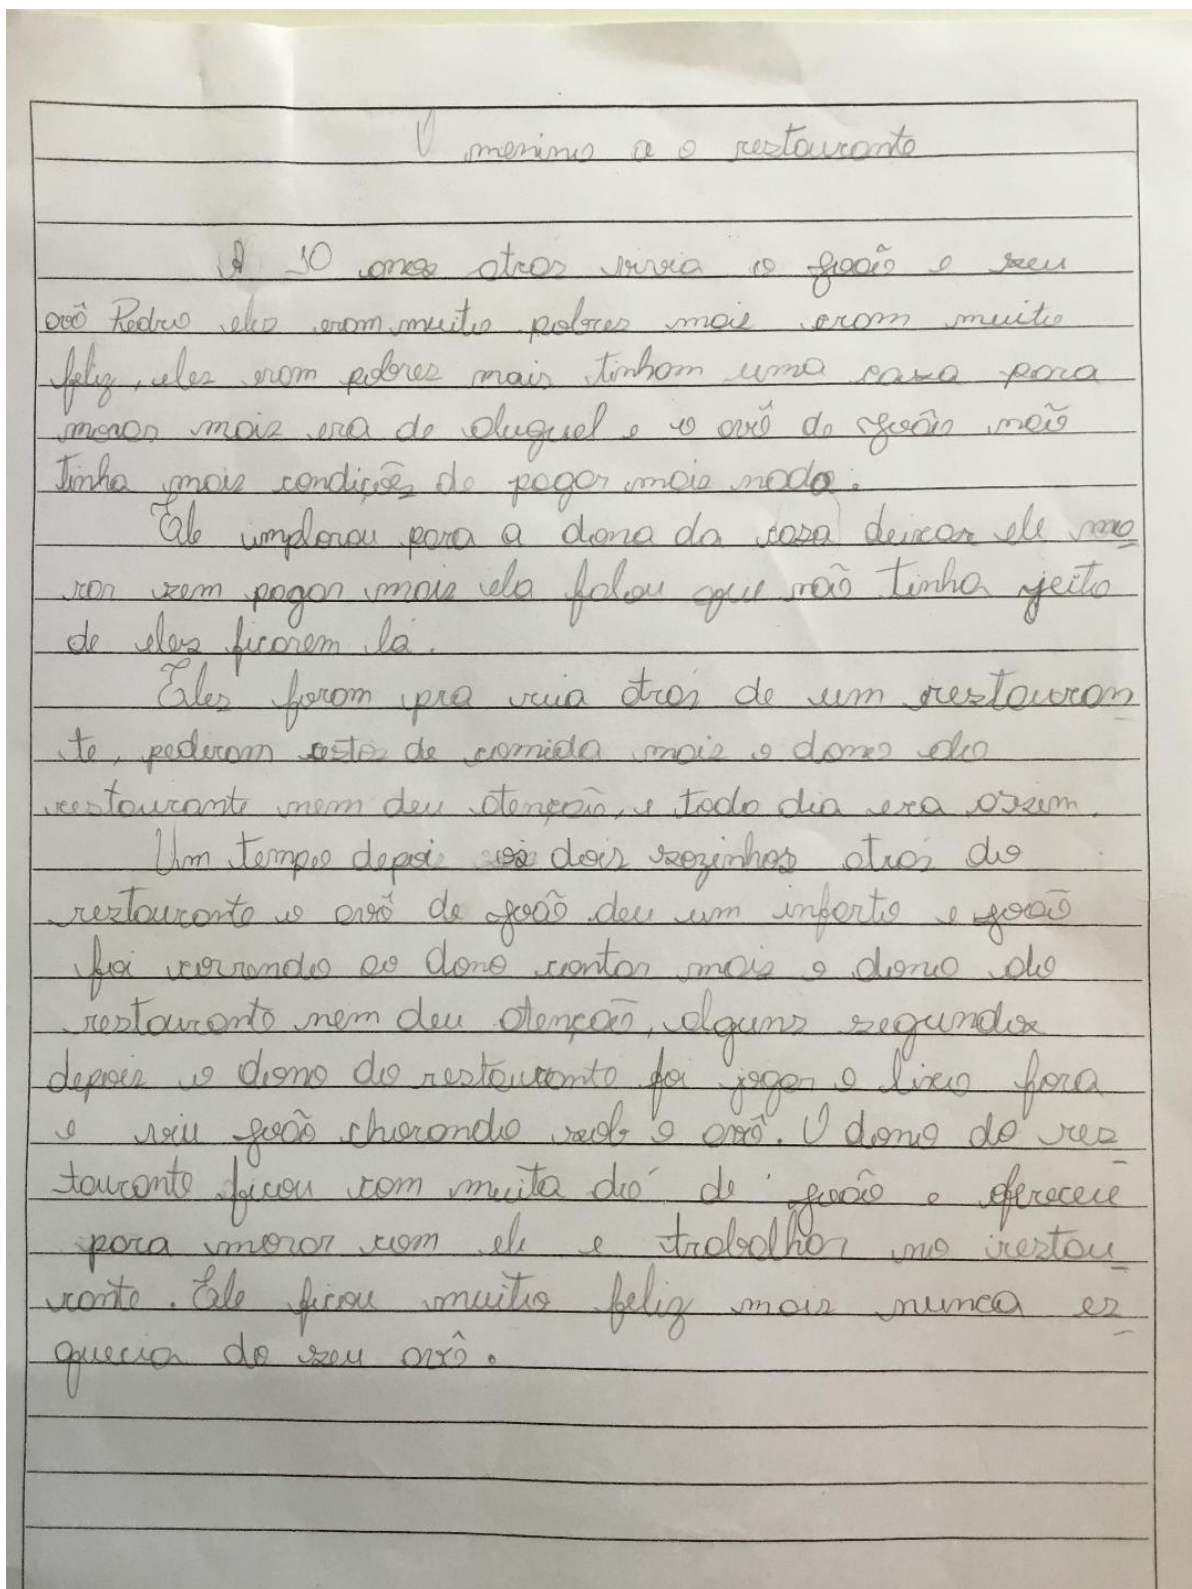 O menino a o restaurante
A 10 anos atras vivia o João e seu
avô Pedro eles eram muito pobres mais eram muito
feliz, eles eram pobres mais tinham uma casa para
morar mais era de aluguel e o avô de João não
tinha mais condições de pagar mais nada.
Ele implorou para a dona da casa deixar ele mo
rar sem pagar mais ela falou que não tinha jeito
de eles ficarem lá.
Eles foram pra rua atras de um restauran
te, pediram restos de comida mais o dono do
restaurante nem deu atenção, e todo dia era assim.
Um tempo depois os dois sozinhos atras do
restaurante o avô de João deu um inforto e João
foi correndo ao dono contar mais o dono do
restaurante nem deu atenção, alguns segundos
depois o dono do restaurante foi jogar o lixo fora
e viu João chorando sob o avô. O dono do res
taurante ficou com muita dó de João e ofereceu
para morar com ele e trabalhar no restau
rante. Ele ficou muito feliz mais nunca es
quecia do seu avô.